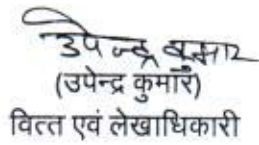 उपेन्द्र कुमार
(उपेन्द्र कुमार)
वित्त एवं लेखाधिकारी